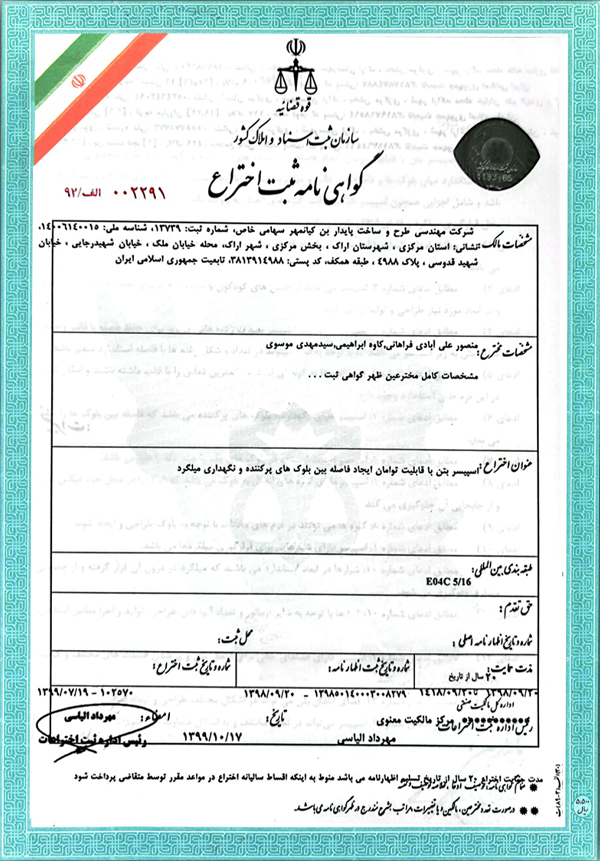 قوه قضائیه
سازمان ثبت اسناد و املاک کشور
گواهی نامه ثبت اختراع
۰۰۲۲۹۱ الف/۹۲
مشخصات مالک:
شرکت مهندسی طرح و ساخت پایدار بن کیانمهر سهامی خاص، شماره ثبت: ۱۳۷۳۹، شناسه ملی: ۱۴۰۰۶۱۴۰۰۱۵،
نشانی: استان مرکزی ، شهرستان اراک ، بخش مرکزی ، شهر اراک، محله خیابان ملک ، خیابان شهیدرجایی ، خیابان
شهید قدوسی ، پلاک ۴۹۸۸ ، طبقه همکف، کد پستی: ۳۸۱۳۹۱۴۹۸۸، تابعیت جمهوری اسلامی ایران
مشخصات مخترع:
منصور علی آبادی فراهانی,کاوه ابراهیمی,سیدمهدی موسوی
مشخصات کامل مخترعین ظهر گواهی ثبت . . .
عنوان اختراع:
اسپیسر بتن با قابلیت توامان ایجاد فاصله بین بلوک های پرکننده و نگهداری میلگرد
طبقه بندی بین المللی:
E04C 5/16
حق تقدم:
شماره و تاریخ اظهارنامه اصلی:
محل ثبت:
مدت حمایت: ۲۰ سال از تاریخ
شماره و تاریخ ثبت اظهارنامه:
شماره و تاریخ ثبت اختراع:
۱۳۹۸/۰۹/۲۰ تا ۱۴۱۸/۰۹/۲۰
۱۳۹۸۵۰۱۴۰۰۰۳۰۰۸۲۷۹ - ۱۳۹۸/۰۹/۲۰
۱۰۲۵۷۰ - ۱۳۹۹/۰۷/۱۹
اداره کل مالکیت صنعتی
رئیس اداره ثبت اختراعات
مرکز مالکیت معنوی
مهرداد الیاسی
تاریخ:
۱۳۹۹/۱۰/۱۷
امضاء:
مهرداد الیاسی
رئیس اداره ثبت اختراعات
مدت حمایت اختراع ۲۰ سال از تاریخ تسلیم اظهارنامه می باشد منوط به اینکه اقساط سالیانه اختراع در مواعد مقرر توسط متقاضی پرداخت شود
در صورت تعدد مخترعین، مالکین و یا تغییرات، مراتب بشرح مندرج در ظهر گواهی نامه می باشد.